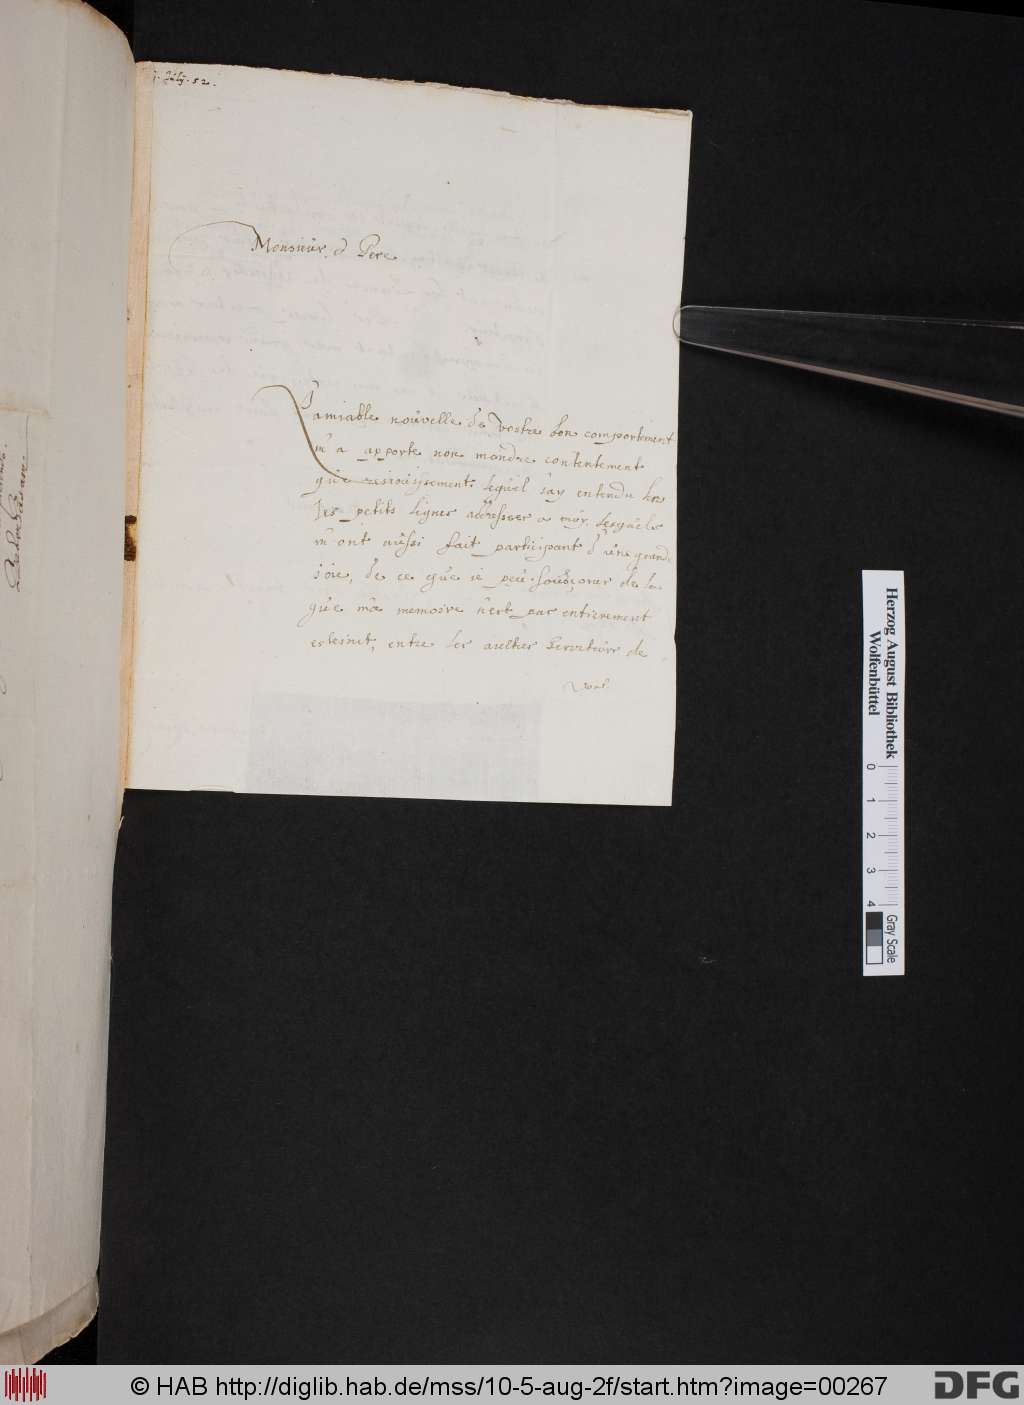 July. 52.
Monsieur. & Pere
L'amiable nouvelle de vostre bon comportement
m'a apporte non moindre contentement
que resiouissement, lequel i'ay entendu
les petits lignes addresser a moy. lesquels
m'ont aussi fait participant d'une grande
joie, de ce que ie peu soubçoner de la
que ma memoire n'est pas entierement
estesinct, entre les aultres serviteurs de
vost
Herzog August Bibliothek
Wolfenbüttel
0 1 2 3 4
Gray Scale
© HAB http://diglib.hab.de/mss/10-5-aug-2f/start.htm?image=00267
DFG